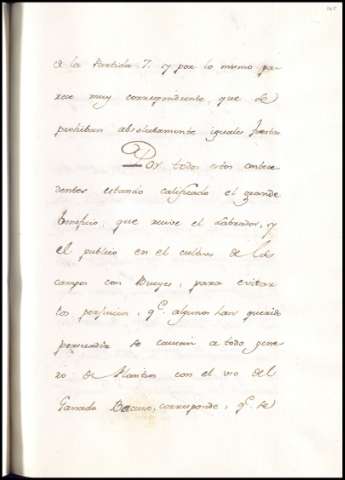 à la Partida 7. y por lo mismo pa
rece muy correspondiente, que se
prohiban absolutamente iguales fiestas
Por todos estos antece
dentes estando calificado el grande
beneficio, que recive el Labrador, y
el publico en el cultivo de los
campos con Bueyes, para evitar
los perjuicios, q.e algunos han querido
persuadir se causan a todo gene
ro de Plantíos con el uso del
Ganado Bacuno, corresponde, q.e se